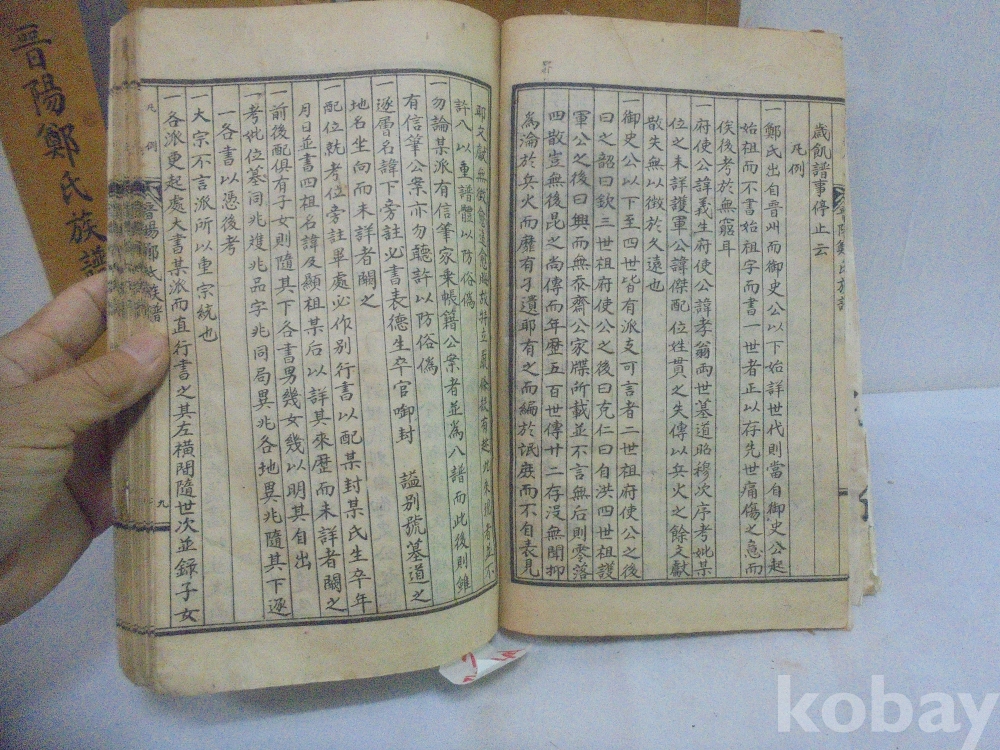 晋陽鄭氏族譜
歲飢譜事停止云
凡例
一鄭氏出自晋州而御史公以下始詳世代則當自御史公起
始祖而不書始祖字而書一世者正以存先世痛傷之意而
俟後考於無窮耳
一府使公諱義生府使公諱孝翁兩世墓道昭穆次序考妣某
位之未詳護軍公諱傑配位姓貫之失傳以兵火之餘文獻
散失無以徵於久遠也
一御史公以下至四世皆有派支可言者二世祖府使公之後
曰之韶曰欽三世祖府使公之後曰克仁曰自洪四世祖護
軍公之後曰興而無忝齋公家牒所載並不言無后則零落
四散豈無後昆之尚傳而年歷五百世傳廿二存沒無聞抑
為淪於兵火而靡有孑遺耶有之而編於氓庶而不自表見
耶文獻無徵
許入以重譜體以防俗偽
一勿論某派有信筆家乗帳籍公案者並為入譜而此後則雖
有信筆公案亦勿聽許以防俗偽
一逐層名諱下旁註必書表德生卒官啣封 謚别號墓道之
地名坐向而未詳者闕之
一配位就考位旁註單處必作别行書以配某封某氏生卒年
月日並書四祖名諱及顯祖某后以詳其來歷而未詳者闕之
一前後配俱有子女則隨其下各書男幾女幾以明其自出
一考妣位墓同兆雖兆品字兆同局異兆各地異兆隨其下逐
一各書以憑後考
一大宗不言派所以重宗統也
一各派更起處大書某派而直行書之其左横間隨世次並錄子女
凡例
晋陽鄭氏族譜
九
kobay